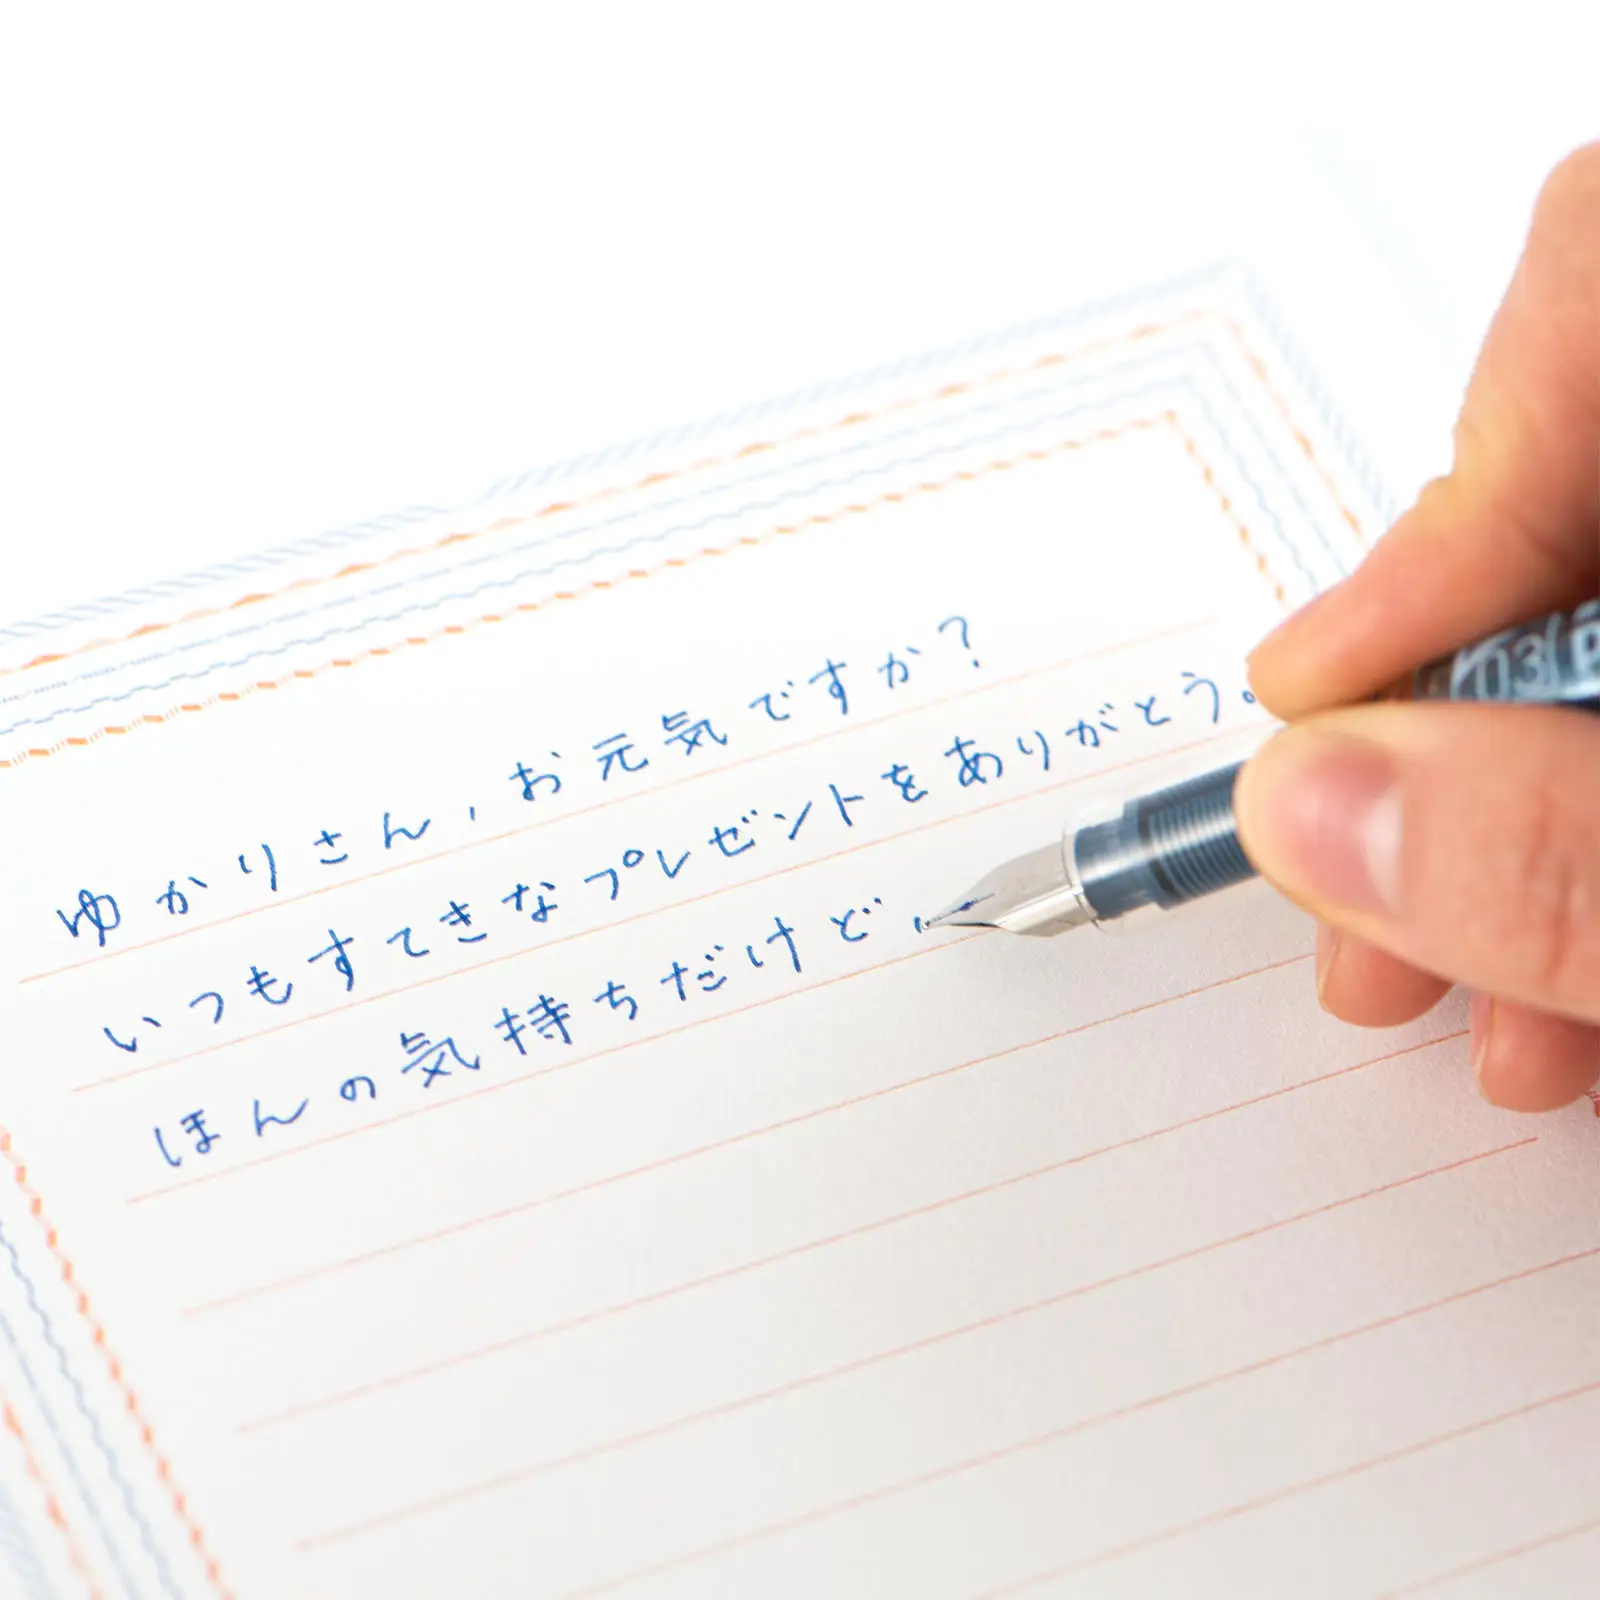 ゆかりさん、お元気ですか？
いつもすてきなプレゼントをありがとう。
ほんの気持ちだけど、
03